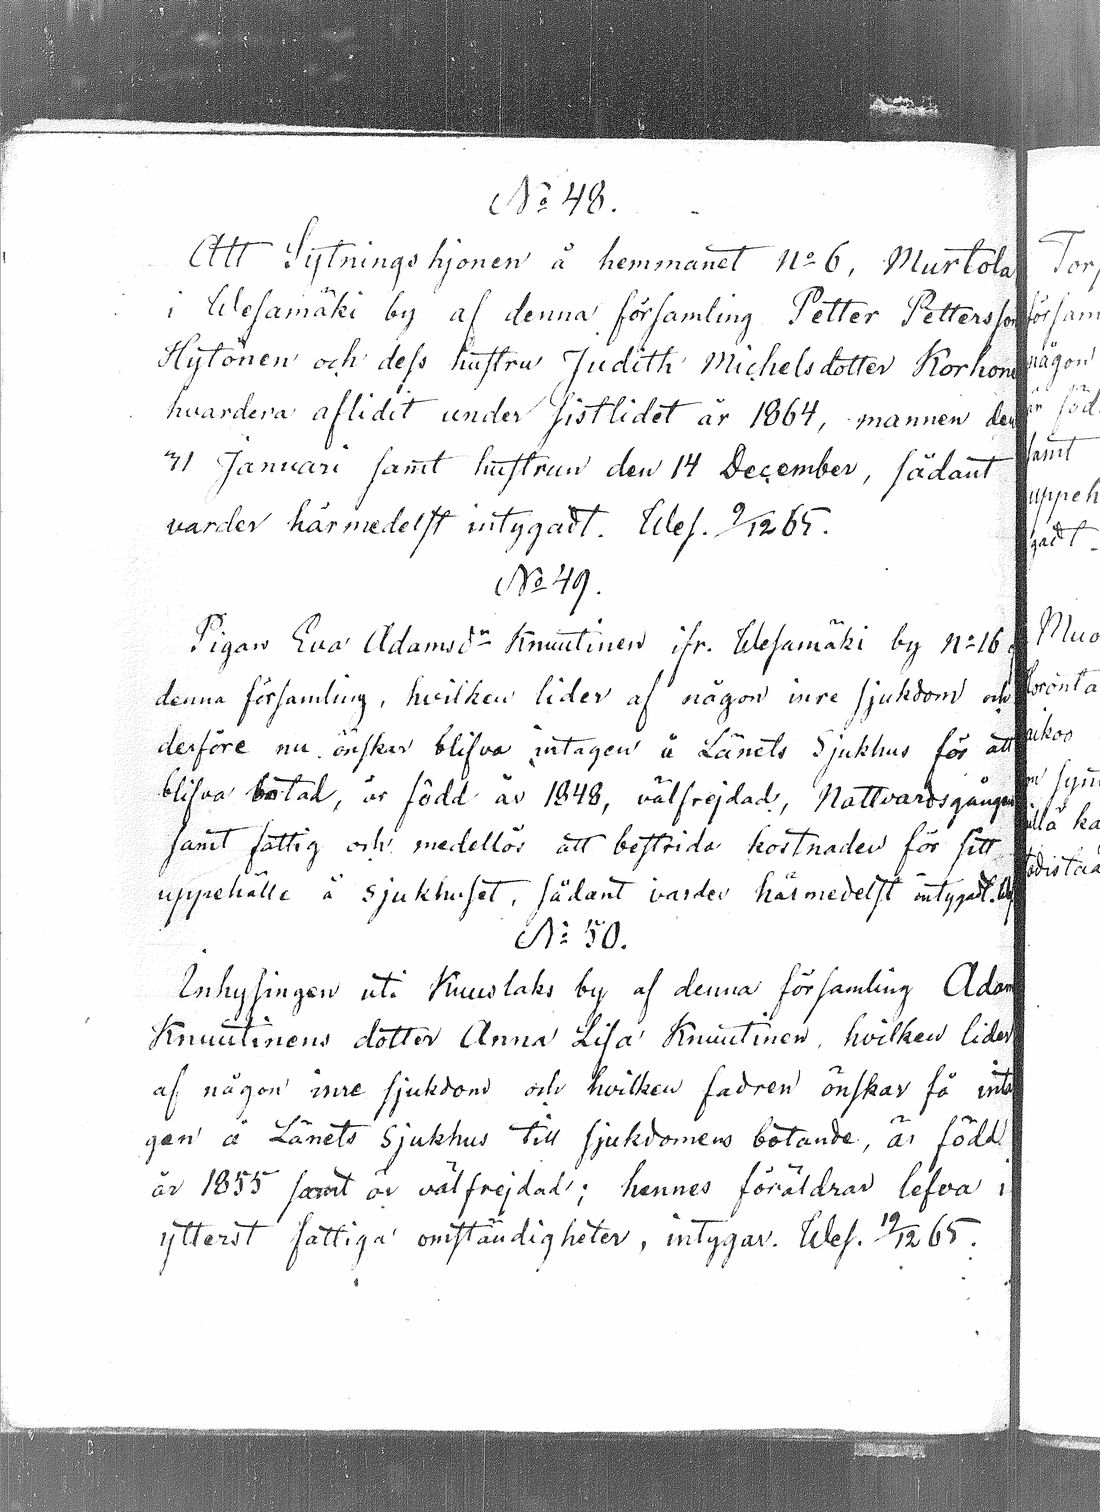 No 48.
Att Sytningshjonen å hemmanet No 6, Murtola
i Wesamäki by af denna församling Petter Pettersson
Hytönen och dess hustru Judith Michelsdotter Korhone
hvardera aflidit under sistlidet år 1864, mannen den
31 Januari samt hustrun den 14 December, sådant
varder härmedelst intygadt. Wes. 9/12 65.
No 49.
Pigan Eva Adamsdr Knuutinen ifr. Wesamäki by No 16
denna församling, hvilken lider af någon inre sjukdom och
derföre nu önskar blifva intagen å Länets Sjukhus för att
blifva botad, är född år 1848, välfrejdad, Nattvardsgången
samt fattig och medellös att bestrida kostnaden för sitt
uppehälle å sjukhuset, sådant varder härmedelst intygadt. Wes
No 50.
Inhysingen uti Kuuslaks by af denna församling Adam
Knuutinens dotter Anna Lisa Knuutinen, hvilken lider
af någon inre sjukdom och hvilken fadren önskar få inta
gen å Länets Sjukhus till sjukdomens botande, är född
år 1855 samt är välfrejdad; hennes föräldrar lefva i
ytterst fattiga omständigheter, intygar. Wes. 19/12 65.
Tor
försam
någon
är född
samt
uppeh
gadt.
Muo